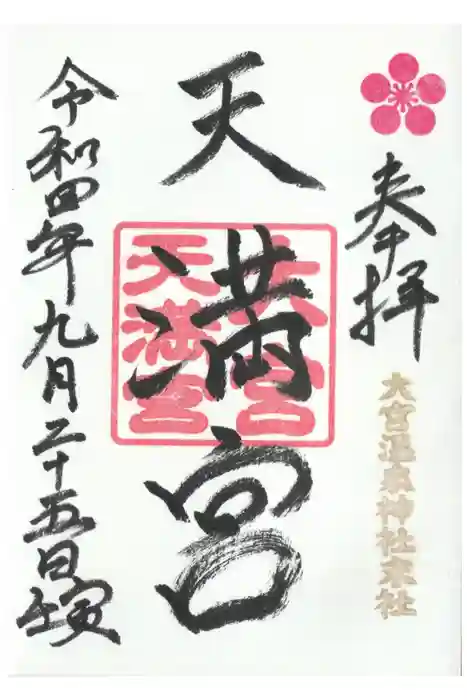 奉拝
大宮温泉神社末社
天満宮
大宮
天満宮
令和四年九月二十五日